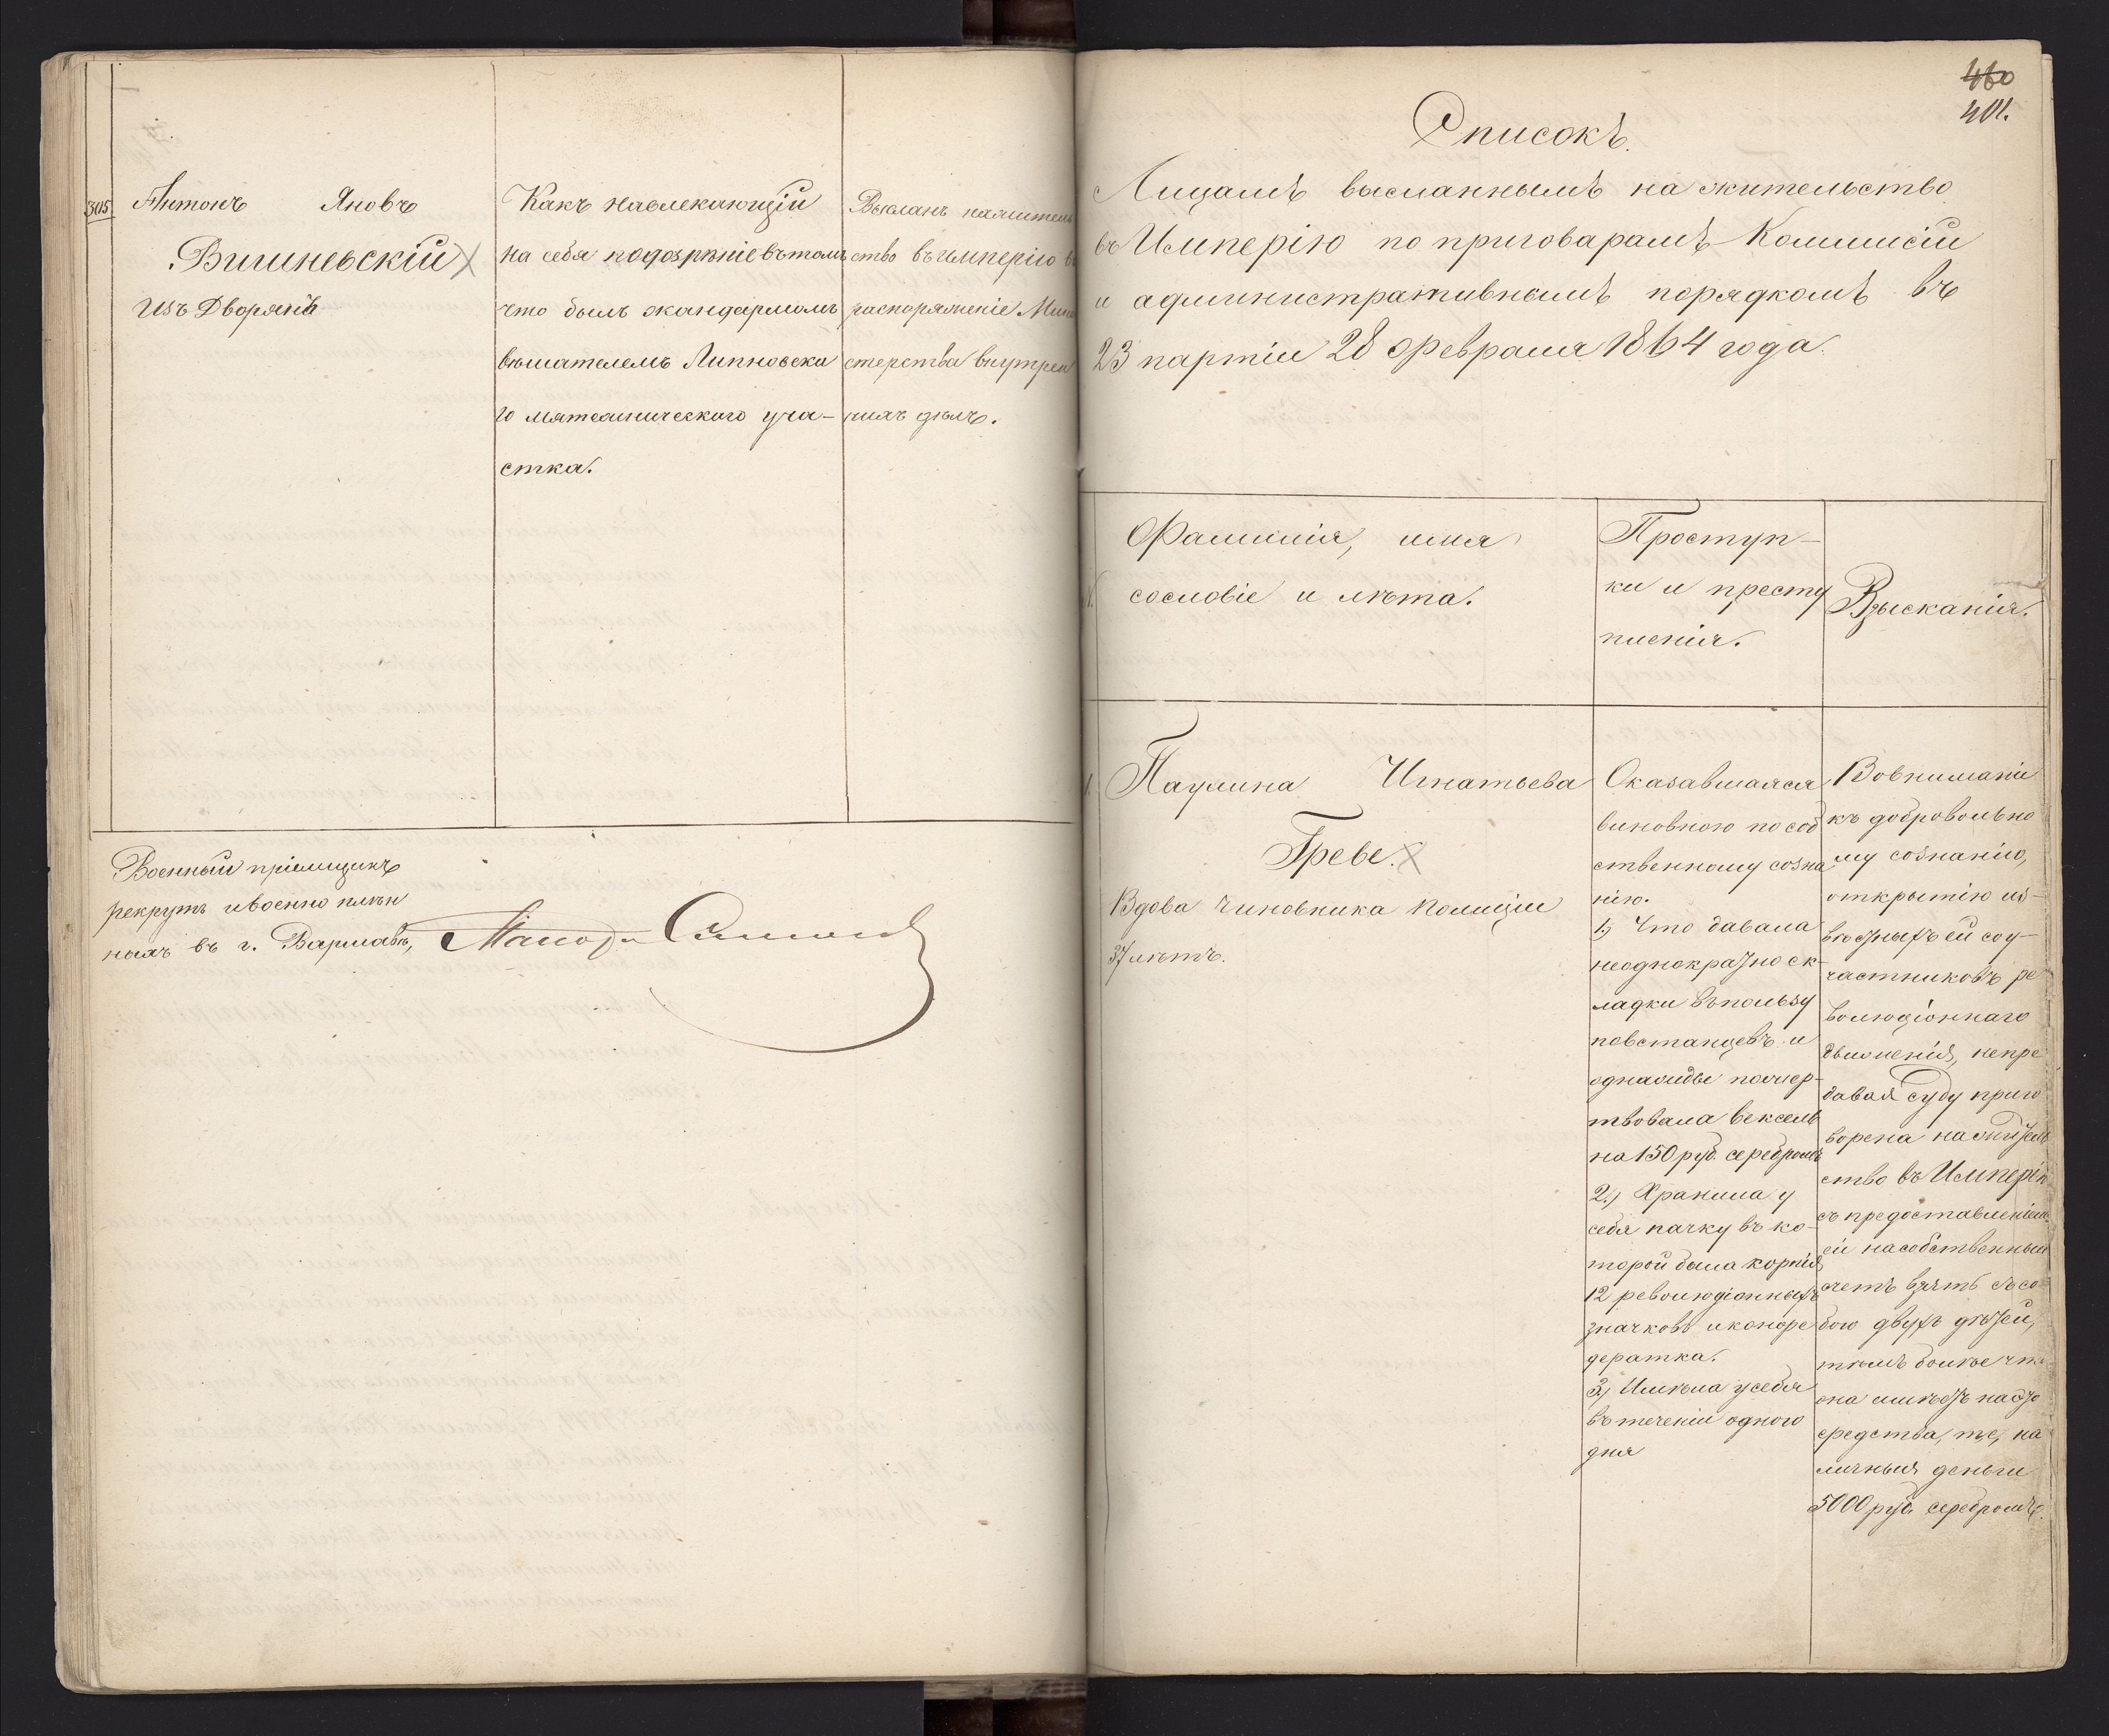 305
Антонъ Яновъ
Вишневскій
Изъ Дворянъ
Какъ навлекающій
на себя подозрѣніе въ томъ
что былъ жандармомъ
вѣшателемъ Липновска
го мятежническаго уча-
стка.
Высланъ на жительс
ство въ имперію въ
распоряженіе Мини
стерства внутрен
нихъ дѣлъ.
Военный пріемщикъ
рекрутъ и военно плѣн
ныхъ въ г. Варшавѣ,
460
401.
Списокъ.
Лицамъ высланнымъ на жительство
въ Имперію по приговарамъ Коммисіи
и административнымъ порядкомъ въ
23 партіи 28 Февраля 1864 года.
N.
Фамилія, имя
сословіе и лѣта.
Проступ-
ки и престу
пленія.
Взысканія.
1.
Паулина Игнатьева
Греве.
Вдова чиновника полиціи
37 лѣтъ.
Оказавшаяся
виновною по соб
ственному созна
нію.
1) Что давала
неоднократно ск-
ладки въ пользу
повстанцевъ и
однажды пожер-
твовала вексель
на 150 руб. серебромъ
2.) Хранила у
себя пачку въ ко-
торой была корпія
12 революціонныхъ
значковъ и конфе
дератка.
3) Имѣла у себя
въ теченіи одного
дня
Вовниманіи
къ добровольно
му сознанію,
открытію из-
вѣстныхъ ей соу-
частниковъ ре
волюціоннаго
движенія, непре
давая суду приго
ворена на житель
ство въ Имперію
съ предоставленіемъ
ей на собственный
счетъ взять съ со
бою двухъ дѣтей,
тѣмъ болѣе что
она имѣетъ на это
средства, т.е, на
личныя деньги
5000 руб. серебромъ.